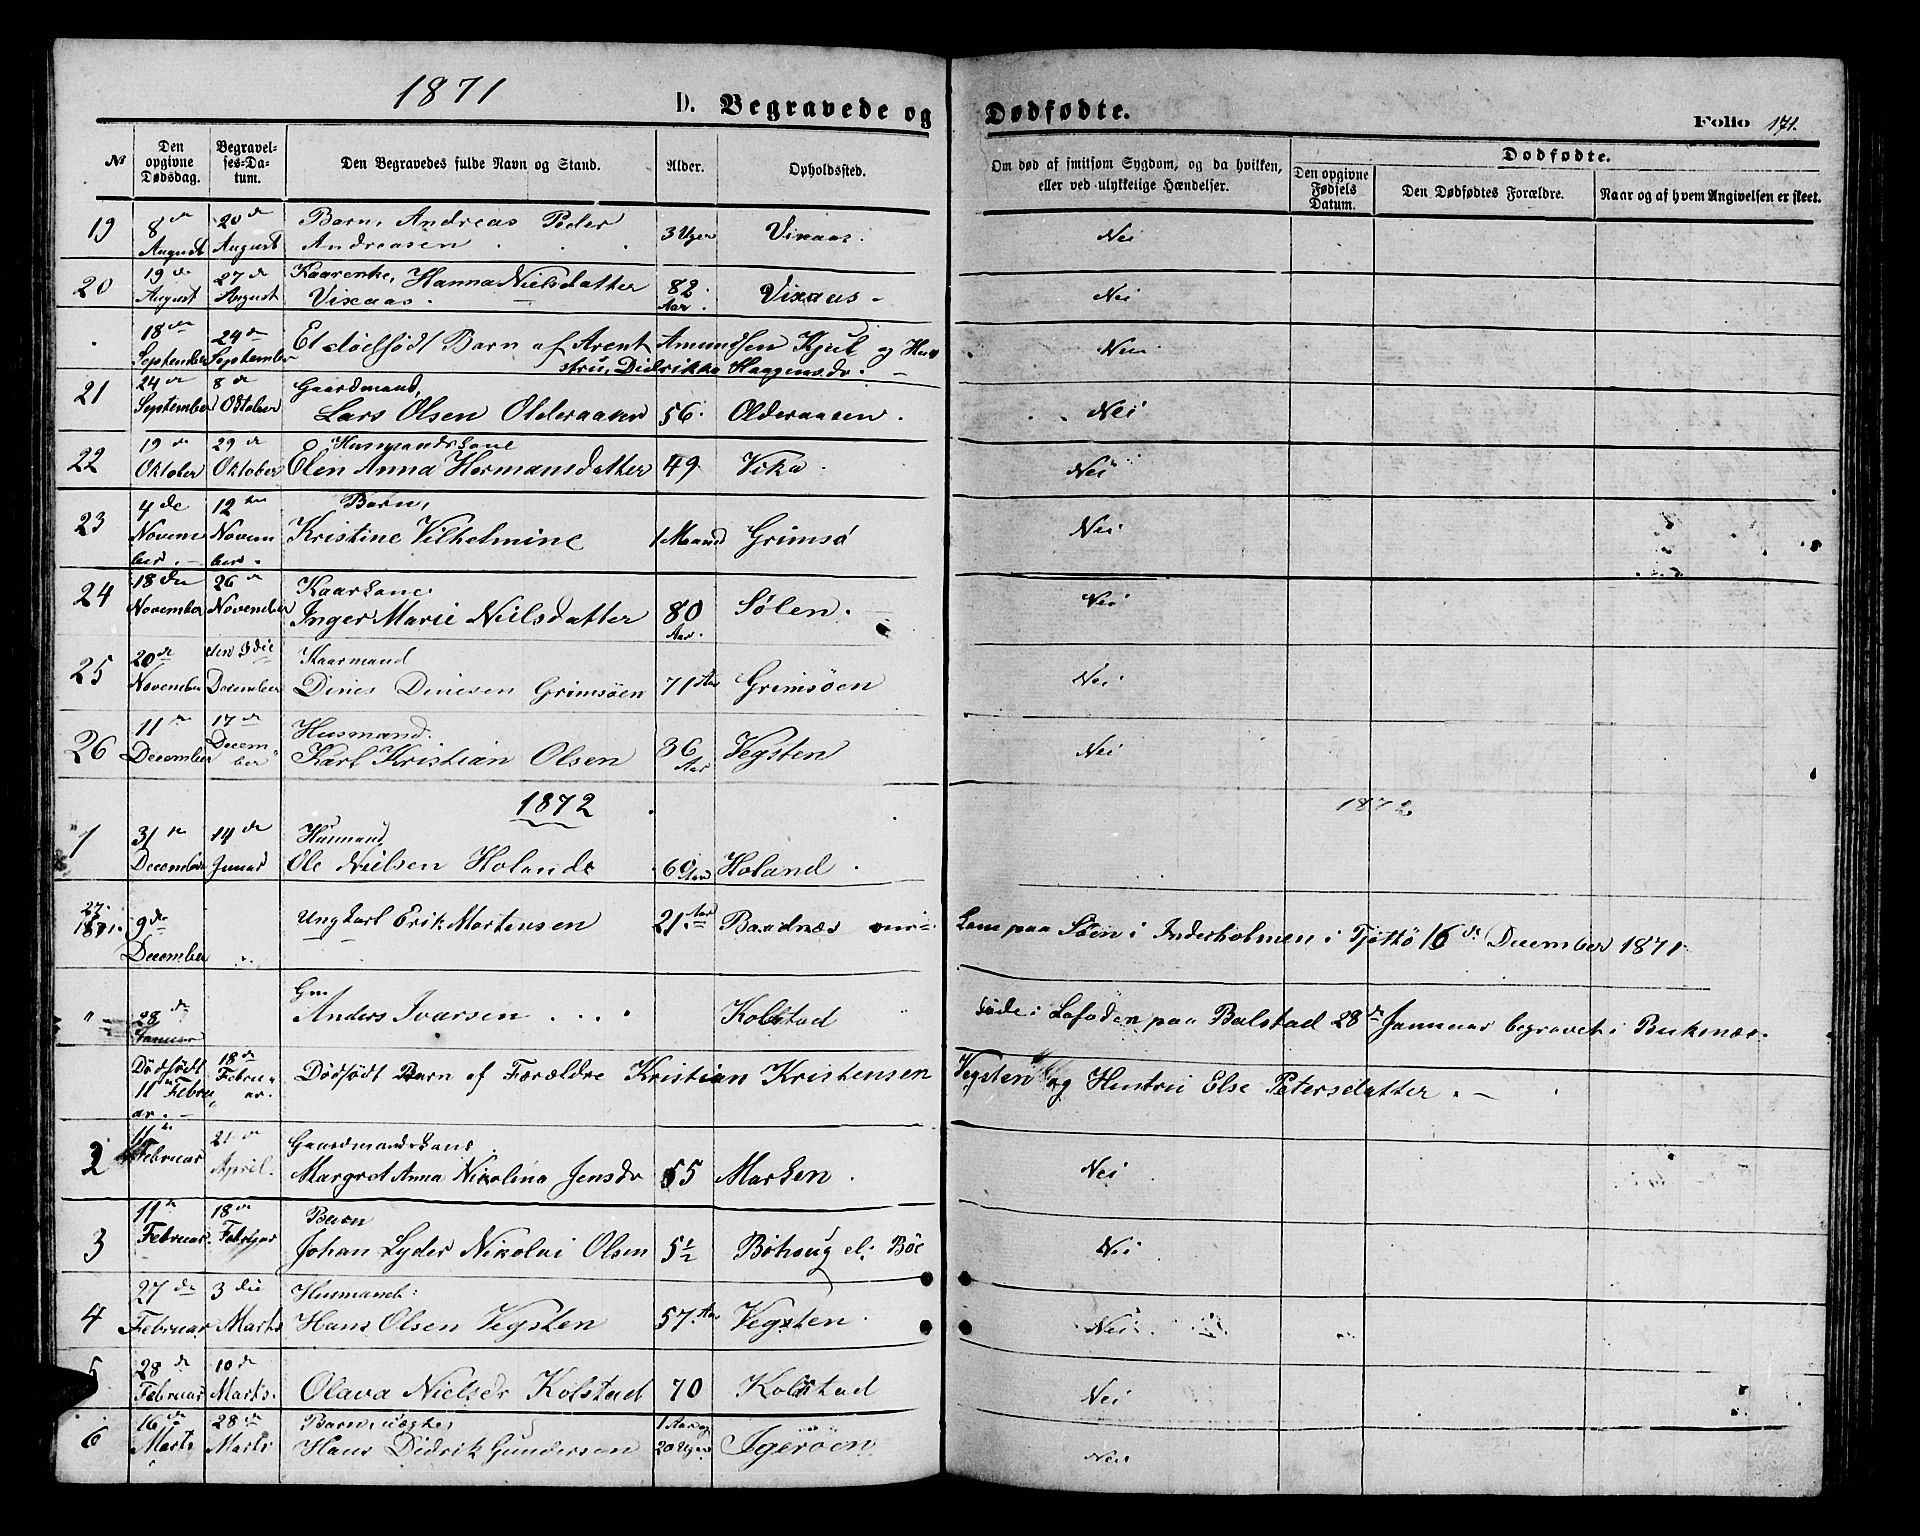 1871
D. Begravede og Dødfødte.
Folio 171.
№
Den opgivne Dødsdag.
Begravelses-Datum.
Den Begravedes fulde Navn og Stand.
Alder.
Opholdssted.
Om død af smitsom Sygdom, og da hvilken, eller ved ulykkelige Hændelser.
Dødfødte.
Den opgivne Fødsels Datum.
Den Dødfødtes Forældre.
Naar og af hvem Angivelsen er skeet.
19 8de August 20de August Barn, Andreas Peder Andreasen 3 Uger Vixaas. Nei
20 19de August 27de August Hanna Nielsdatter Vixaas. 82 Aar. Vixaas Nei
18de September 24de September Et dødfødt Barn af Arent Amundsen Kjul og Hustru, Didrikka Haagensdr. Nei
21 24de September 8de Oktober Gaardmand, Lars Olsen Olderaasen 56. Olderaasen. Nei
22 19de Oktober 29de Oktober Husmandskone Elen Anna Hermansdatter 49 Vika. Nei
23 4de November 12te November Barn, Kristine Vilhelmine 1 Maaned Grimsø Nei
24 18de November 26de November Kaarkone Inger Marie Nielsdatter 80 Aar. Sølen. Nei
25 20de November December Kaarmand Dines Dinesen Grimsøen 71 Aar Grimsøen Nei
26 11de December 17de December Husmand. Karl Kristian Olsen 36 Aar Vegsten Nei
1872
1872
1 31te December 14de Januar Husmand Ole Nielsen Holand 60 Aar Holand.
27 1871. 9de December Ungkarl Erik Mortensen 21 Aar Baadnæs Kom paa Søen i Inderholmen i Tjøttø 16de December 1871
" 28de Januar Gm Anders Ivarsen Kolstad Døde i Lofoden paa Balstad 28de Januar begravet i Buksnæs.
Dødfødt 11te Februar. 18de Februar. Dødfødt Barn af Forældre Kristian Kristensen Vegsten og Hustru Else Petersdatter.
2 11te Februar 21de April. Gaardmandskone. Margret Anna Nikolina Jensdr 55 Marken. Nei
3 11te Februar. 18de Februar Barn Johan Lyder Nikolai Olsen 5½ Bøhaug el: Böe Nei
4 27de Februar 3die Marts Husmand: Hans Olsen Vegsten 57 Aar Vegsten. Nei
5 28de Februar 10de Marts. Olava Nielsdr Kolstad 70 Kolstad Nei
6 16de Marts 28de Marts Barn, uægte, Hans Didrik Gundersen 1 Aar og 20 Uger Igerøen Nei